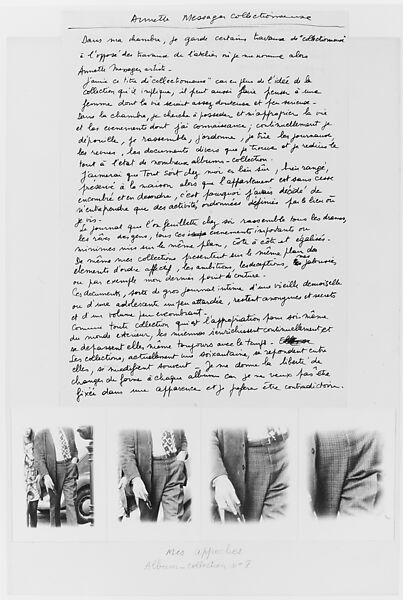 Annette Messager collectionneuse
Dans ma chambre, je garde certains travaux de "collectionneuse"
à l'opposé des travaux de l'atelier où je me nomme alors
Annette Messager artiste.
J'aime ce titre de "collectionneuse" car en plus de l'idée de la
collection qu'il implique, il peut aussi faire penser à une
femme dont la vie serait assez douteuse et peu sérieuse.
Dans la chambre, je cherche à posséder et m'approprier la vie
et les évènements dont j'ai connaissance; continuellement je
dépouille, je rassemble, j'ordonne, je trie les journaux,
les revues, les documents divers que je trouve et je réduis le
tout à l'état de nombreux albums-collection.
J'aimerai que tout soit chez moi en lieu sûr, bien rangé,
préservé à la maison alors que l'appartement est sans cesse
encombré et en désordre, c'est pourquoi j'avais décidé de
n'entreprendre que des activités ordonnées définies par le lieu où
je vis.
Le journal que l'on feuillette chez soi rassemble tous les drames,
les rêves des gens, tous ces évènements importants ou
minimes mis sur le même plan, côte à côte et égalisés.
De même mes collections présentent sur le même plan des
éléments d'ordre affectif, les ambitions, les déceptions, jalousie,
ou par exemple mon dernier point de couture.
Ces documents, sorte de gros journal intime d'une vieille demoiselle
ou d'une adolescente un peu attardée, restent anonymes et secrets
et d'un volume peu encombrant.
Comme toute collection qui est l'appropriation pour soi-même
du monde extérieur, les miennes s'enrichissent continuellement et
se dépassent elles même toujours avec le temps.
Les collections, actuellement une soixantaine, se répondent entre
elles, se modifient souvent. Je me donne la liberté de
changer de forme à chaque album car je ne veux pas être
fixée dans une apparence et je préfère être contradictoire.
Mes approches
Album-collection n° 8